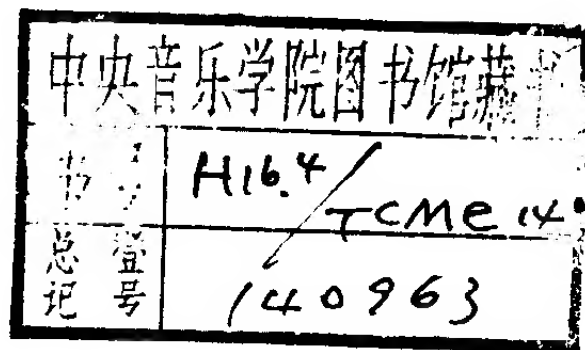 中央音乐学院图书馆藏书
书号 H16.4/TCME 14
总登记号 140963